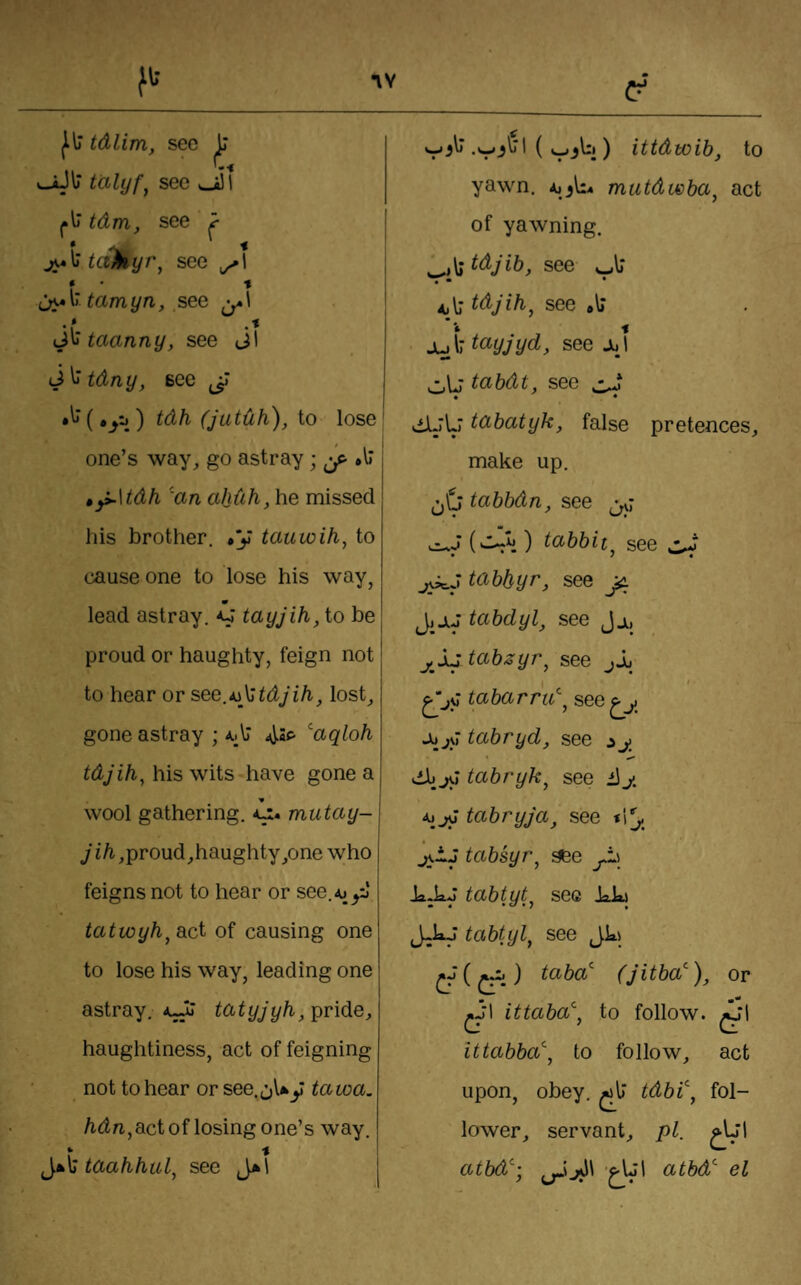 تالم ٦٧ تبع
تالم tâlim, see تلم
تاليف talyf, see الف
تام tâm, see تم
تامير see امر
تامين tamyn, see امن
تانى taanny, see انى
تانى tâny, see
تاه (يتوه) tâh (jutûh), to lose
one's way, go astray; تاه عن
اخوه tâh ʿan aḫûh, he missed
his brother. توه tauwih, to
cause one to lose his way,
lead astray. تيه tayjih, to be
proud or haughty, feign not
to hear or see. تايه tâjih, lost,
gone astray; عقله تايه ʿaqloh
tâjih, his wits have gone a
wool gathering. متيه mutay-
jih, proud, haughty, one who
feigns not to hear or see. تتويه
tatwyh, act of causing one
to lose his way, leading one
astray. تتييه tatyjyh, pride,
haughtiness, act of feigning
not to hear or see. توهان tawa-
hân, act of losing one's way.
تاهل taahhul, see اهل
تاوب. اتاوب (يتاوب) ittâwib, to
yawn. متاوبة mutâwba, act
of yawning.
تايب tâjib, see تاب
تايه tâjih, see تاه
تاييد tayjyd, see ايد
تبات tabât, see تبت
تباتيك tabatyk, false pretences,
make up.
تبان tabbân, see تبن
تبت (يتبت) tabbit, see تبت
تبخير tabḫyr, see بخر
تبديل tabdyl, see بدل
تبذير tabzyr, see بذر
تبرع tabarruʿ, see برع
تبريد tabryd, see برد
تبريك tabryk, see برك
تبرية tabryja, see براء
تبشير tabśyr, see بشر
تبطيط tabṭyṭ, see بطط
تبطيل tabṭyl, see بطل
تبع (يتبع) tabaʿ (jitbaʿ), or
اتبع ittabaʿ, to follow. اتبع
ittabbaʿ, to follow, act
upon, obey. تابع tâbiʿ, fol-
lower, servant, pl. اتباع
atbâʿ; اتباع الترزى atbâʿ el